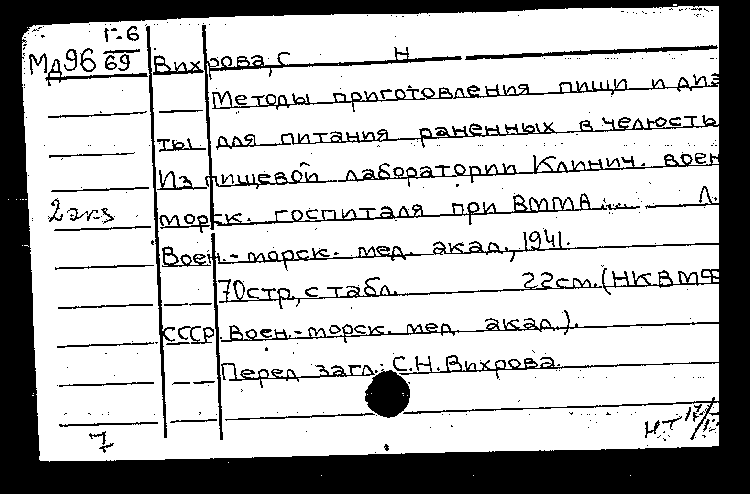 Г-6
МД96 69 Вихрова, С Н
Методы приготовления пищи и дие
ты для питания раненных в челюсть
Из пищевой лаборатории Клинич. воен
2 экз морск. госпиталя при ВММА .... Л.
Воен.-морск. мед. акад., 1941.
70стр, с табл. 22см. (НКВМФ
СССР. Воен.-морск. мед. акад.).
Перед загл.: С.Н.Вихрова.
7 НТ 17/